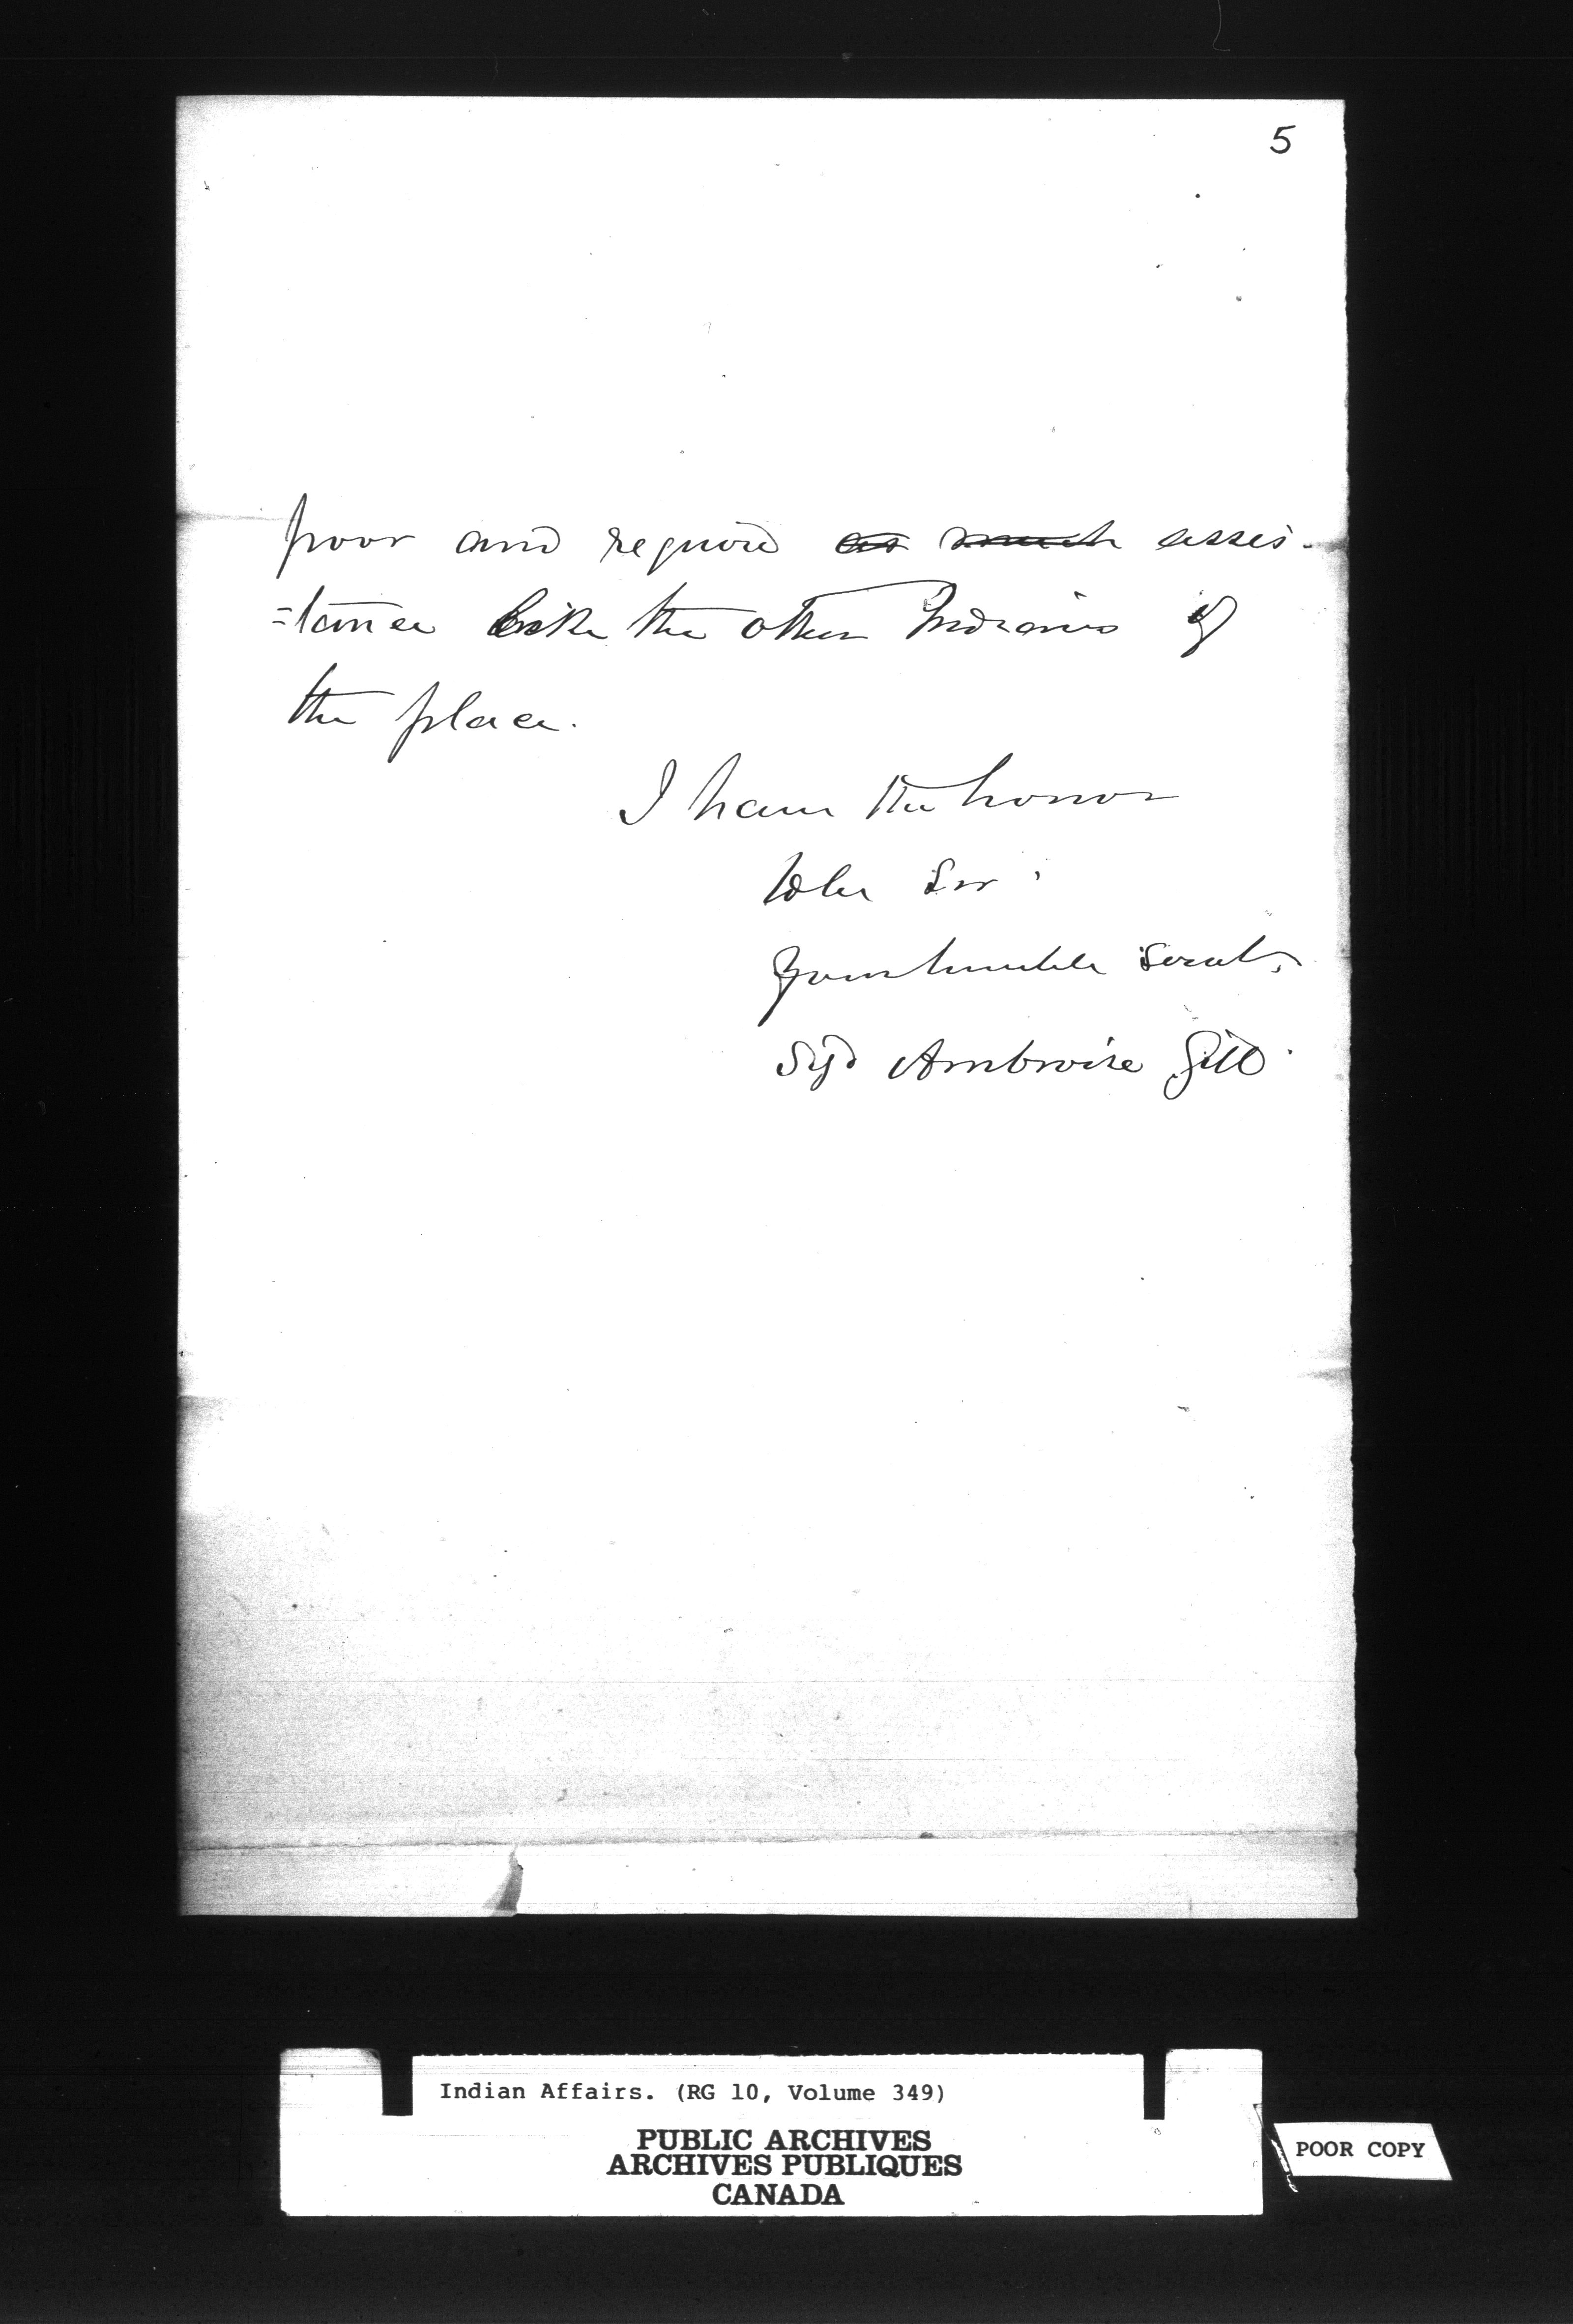 5
poor and require as much assis-
=tance like the other Indians of
the place.
I have the honor
to be Sir
Your humble Servt.
Sig'd Ambroise Gill
Indian Affairs. (RG 10, Volume 349)
PUBLIC ARCHIVES
ARCHIVES PUBLIQUES
CANADA
POOR COPY